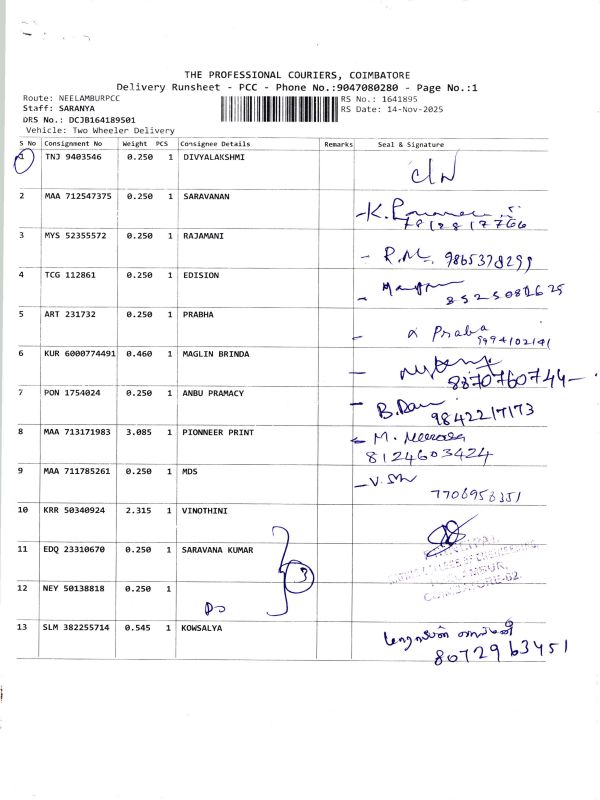 THE PROFESSIONAL COURIERS, COIMBATORE
Delivery Runsheet - PCC - Phone No.:9047080280 - Page No.:1
Route: NEELAMBURPCC
RS No.: 1641895
Staff: SARANYA
RS Date: 14-Nov-2025
DRS No.: DCJB164189501
Vehicle: Two Wheeler Delivery
S No Consignment No Weight PCS Consignee Details Remarks Seal & Signature
1 TNJ 9403546 0.250 1 DIVYALAKSHMI
2 MAA 712547375 0.250 1 SARAVANAN
3 MYS 52355572 0.250 1 RAJAMANI R.M. 9865378299
4 TCG 112861 0.250 1 EDISION
5 ART 231732 0.250 1 PRABHA Praba
9994102141
6 KUR 6000774491 0.460 1 MAGLIN BRINDA
8870760744
7 PON 1754024 0.250 1 ANBU PRAMACY
9842217173
8 MAA 713171983 3.085 1 PIONNEER PRINT
8124603424
9 MAA 711785261 0.250 1 MDS
7706958351
10 KRR 50340924 2.315 1 VINOTHINI
11 EDQ 23310670 0.250 1 SARAVANA KUMAR
3
12 NEY 50138818 0.250 1
COIMBATORE-62
13 SLM 382255714 0.545 1 KOWSALYA
8072963451